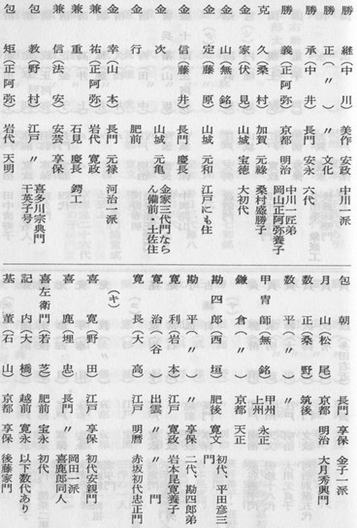 勝 継（中 川） 美作 安政 中川一派
勝 正（ 〃 ） 〃 文化
勝 承（中 井） 長門 安永 六代
勝 義（正阿弥） 京都 明治 中川一匠弟 岡山正阿弥養子
克 久（桑 村） 加賀 元祿 桑村盛勝子
金 家（伏 見） 山城 宝徳 大初代
金 山（無 銘） 山城
金 定（藤 原） 山城 元和 江戸にも住
金 信（藤 井） 長門 慶長
金 次 山城 元亀 金家三代門ならん備前・土佐住
金 行 肥前
金 幸（山 本） 長門 元禄 河治一派
兼 祐（正阿弥） 岩代 寛政
兼 重 石見 慶長 鍔工
兼 信（法 安） 安芸 享保
包 教（野 村） 江戸 〃 喜多川宗典門 干英子号
包 矩（正阿弥） 岩代 天明
包 朝 長門 享保 金子一派
月 山（松 尾） 京都 明治 大月秀興門
数 正（桑 野） 筑後
数 平（ 〃 ） 〃
甲冑師（無 銘） 甲州 上州 永正
鎌 倉（ 〃 ） 京都 天正
勘四郎（西 垣） 肥後 寛文 初代、平田彦三門
勘 平（ 〃 ） 〃 享保 二代、勘四郎弟
寛 利（岩 本） 江戸 寛政 岩本昆寛養子
寛 治（ 谷 ） 出雲 〃 〃 門
寛 長（大 高） 江戸 明暦 赤坂初代忠正門
（キ）
喜 寛（野 田） 江戸 享保 初代安親門
喜 鹿（埋 忠） 長門 〃 岡田一派 喜鹿郎同人
喜左衛門（若 芝） 肥前 宝永 初代
記 内（大 橋） 越前 寛永 以下数代あり
基 董（石 山） 京都 享保 後藤家門